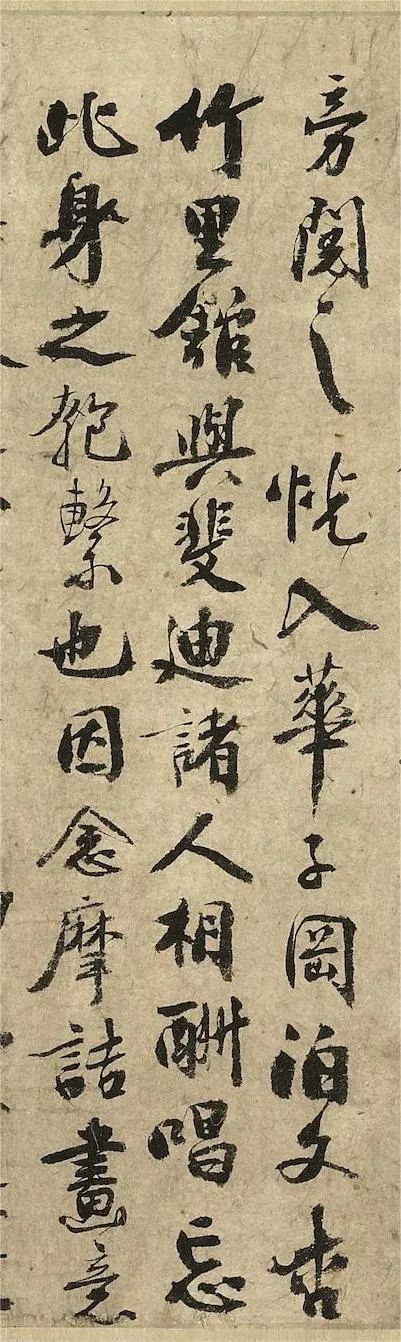 旁閱之恍入華子岡泊文杏
竹里館與斐迪諸人相酬唱忘
此身之匏繫也因念摩詰畫意